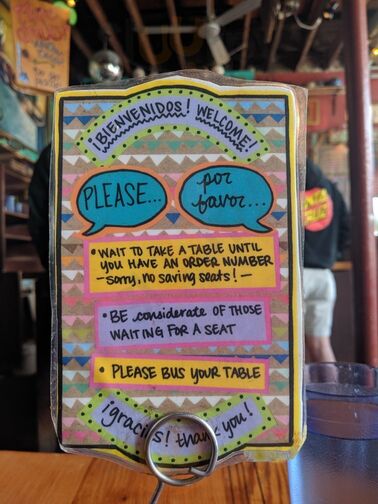 ¡BIENVENIDOS! WELCOME!
PLEASE...
por
favor...
• WAIT TO TAKE A TABLE UNTIL
YOU HAVE AN ORDER NUMBER
—sorry, no saving seats!—
• BE considerate OF THOSE
WAITING FOR A SEAT
• PLEASE BUS YOUR TABLE
¡gracias! thank you!